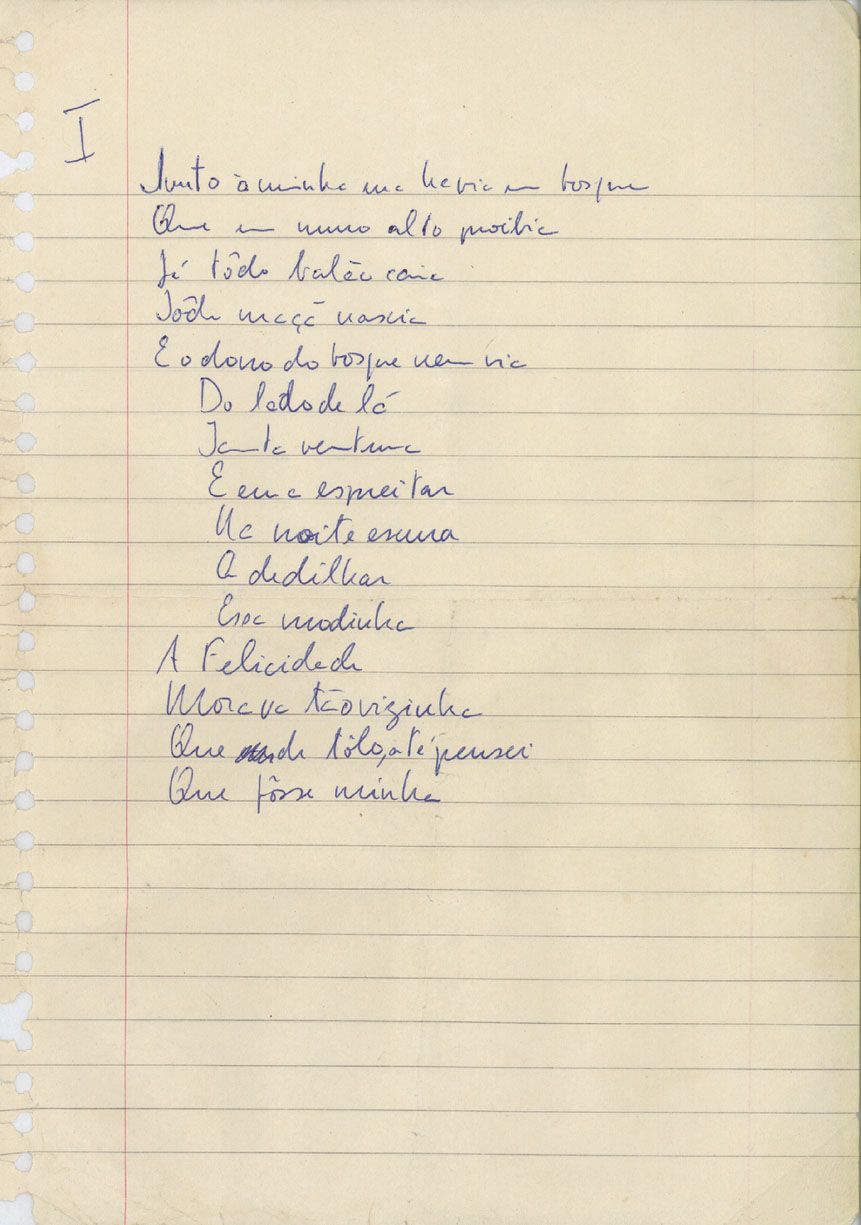 I
Junto à minha rua havia um bosque
Que um muro alto proibia
Lá tôdo balão caia
Tôda maçã nascia
E o dono do bosque nem via
Do lado de lá
Tanta ventura
E eu a espreitar
Na noite escura
A dedilhar
Essa modinha
A Felicidade
Morava tão vizinha
Que de tôlo, até pensei
Que fôsse minha